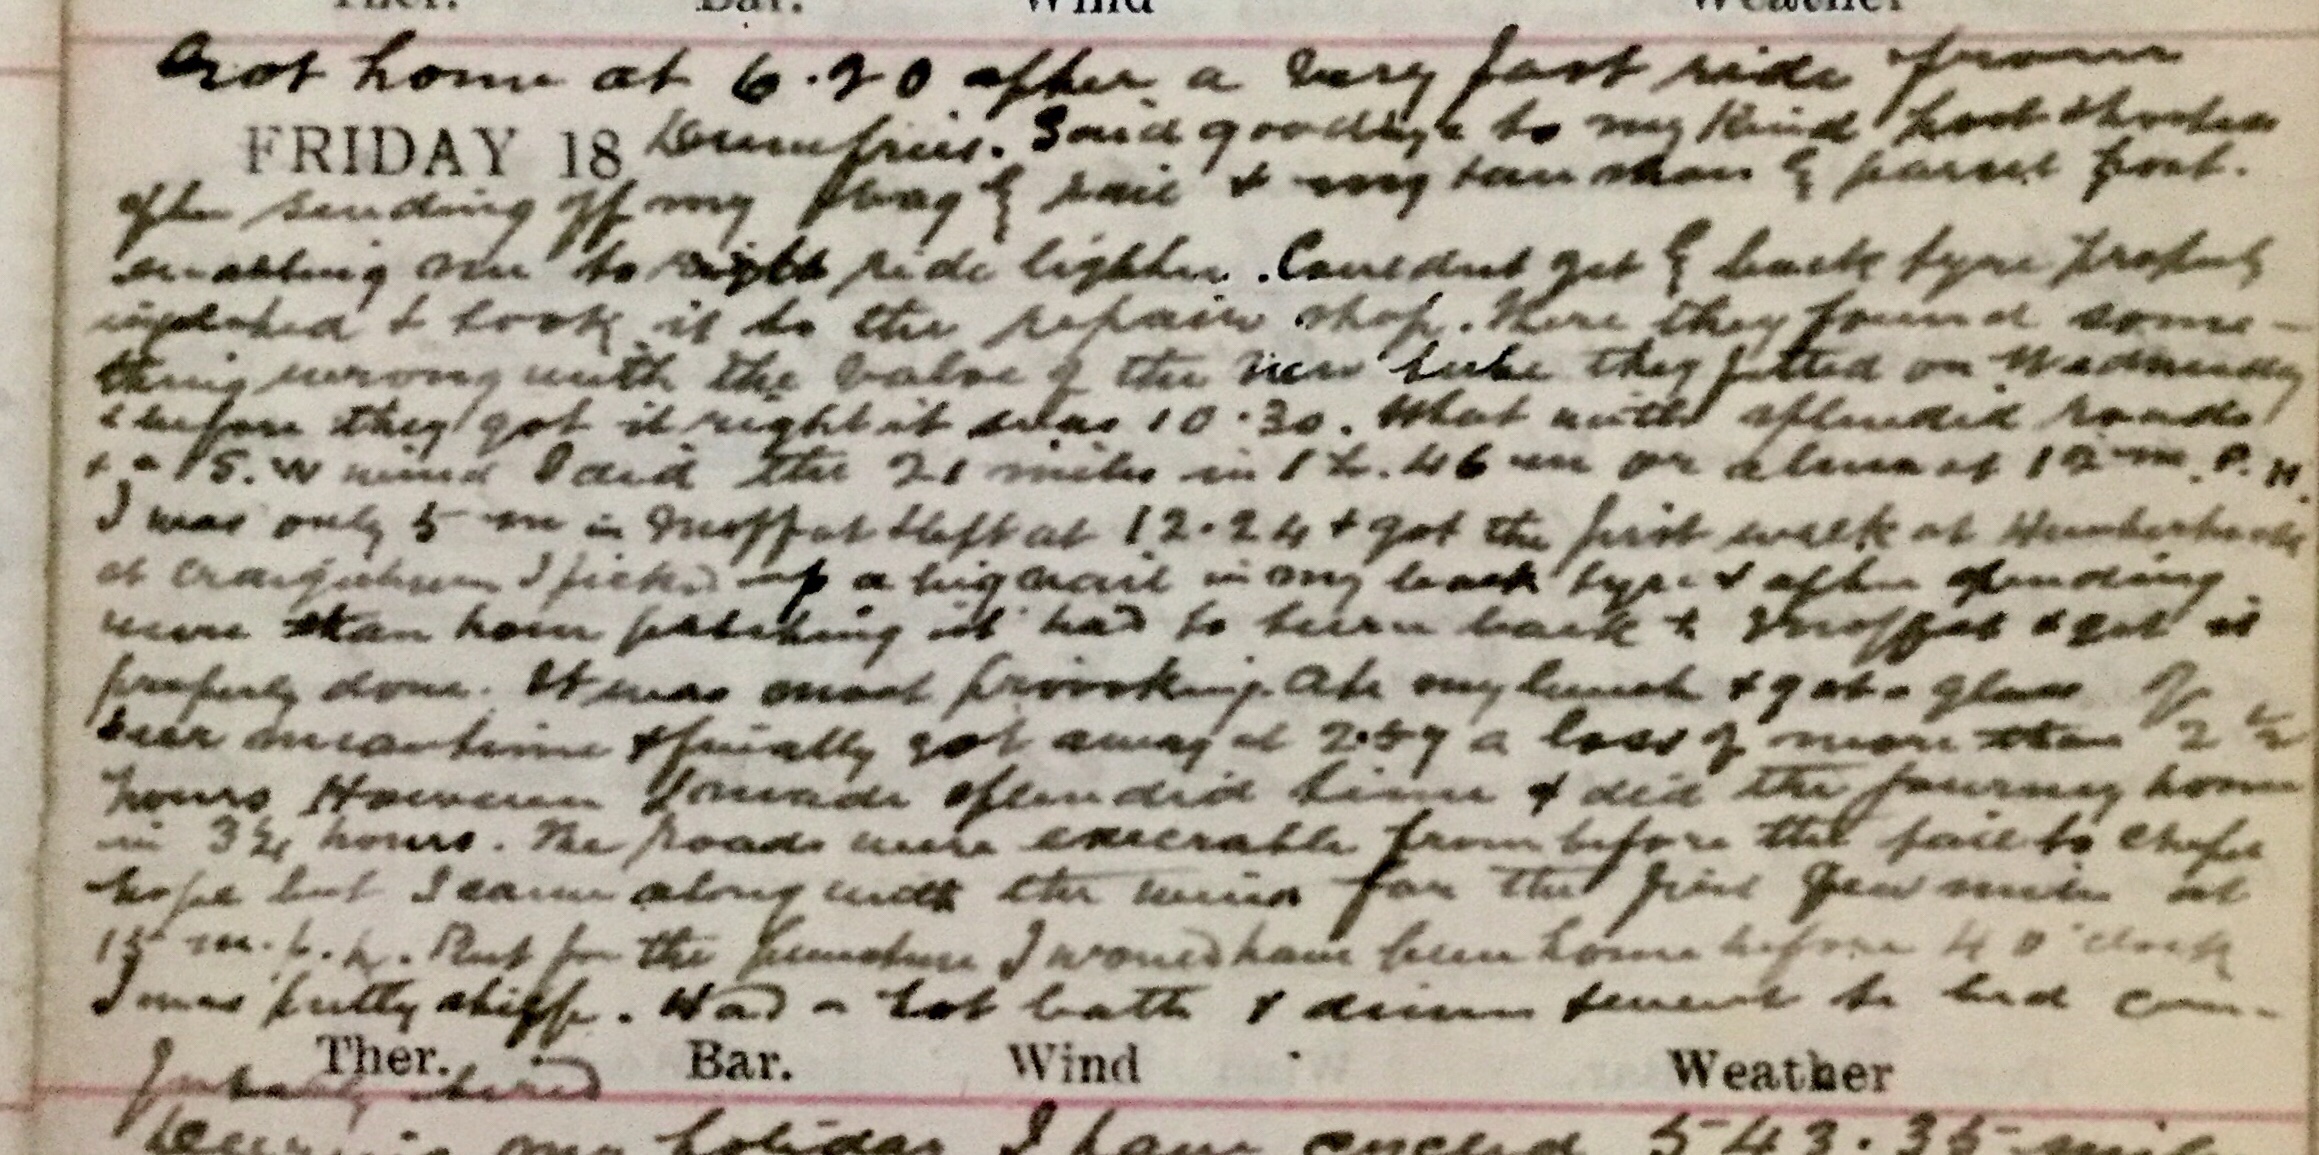 Ther. Bar. Wind Weather
Got home at 6.20 after a very fast ride from
FRIDAY 18 Dumfries. Said goodbye to my kind host & hostess
after sending off my bag by rail & my by parcel post.
enabling me to ride lighter. Couldnt get back tyre properly
inflated & took it to the repair shop. There they found some-
thing wrong with the valve of the new tube they fitted on Wednesday
& before they got it right it was 10.30. What with splendid roads
& a S.W wind I did the 21 miles in 1 h. 46 m or almost 12 m.P.H.
I was only 5 m in Moffat & left at 12.24 & got the first walk at
at I picked up a big nail in my back tyre & after spending
more than hour patching it had to turn back to Moffat & get it
properly done. It was most provoking. Ate my lunch & got a glass of
beer meantime & finally got away at 2.59 a loss of more than 2½
hours However I made splendid time & did the journey home
in 3¼ hours. The roads were execrable from before the to
hope but I came along with the wind for the first few miles at
15 m.p.h. But for the puncture I would have been home before 4 o'clock
I was pretty stiff. Had a hot bath & dinner & went to bed com-
Ther. Bar. Wind Weather
fortably tired
During my holiday I have cycled 543.35 miles